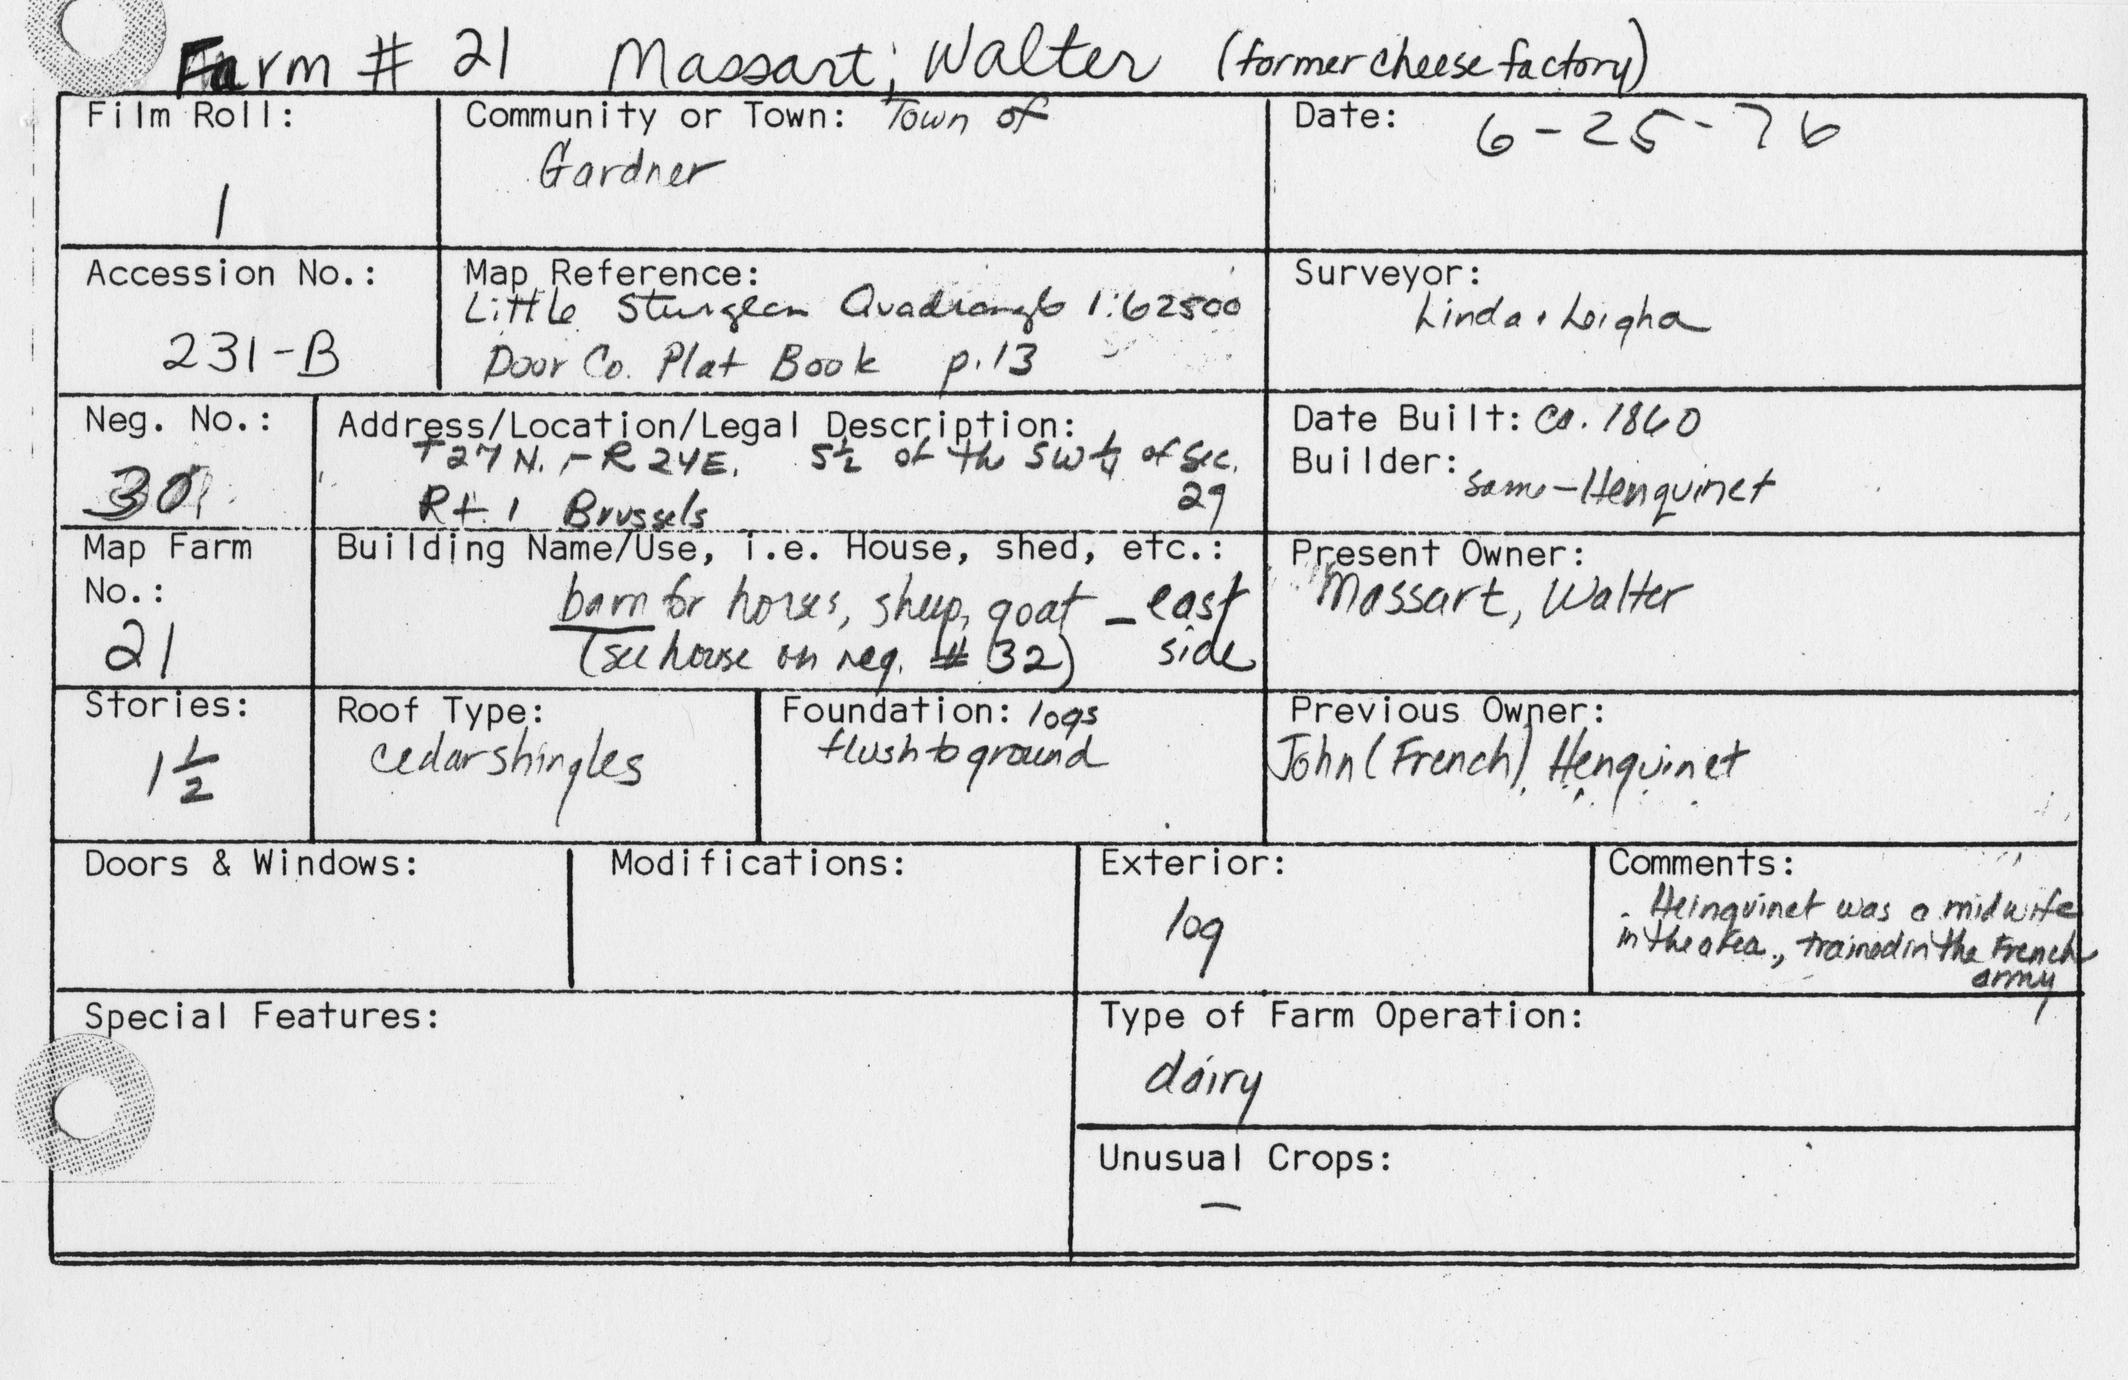 Farm # 21 Massart, Walter (former cheese factory)
Film Roll:
1
Community or Town: Town of
Gardner
Date: 6-25-76
Accession No.:
231-B
Map Reference:
Little Sturgeon Quadrangle 1:62500
Door Co. Plat Book p.13
Surveyor:
Linda + Leigha
Neg. No.:
30
Address/Location/Legal Description:
T27N. - R24E. S½ of the SW¼ of Sec.
29
Rt. 1 Brussels
Date Built: ca. 1860
Builder: same - Henquinet
Map Farm
No.:
21
Building Name/Use, i.e. House, shed, etc.:
barn for horses, sheep, goat - east
(see house on neg. # 32) side
Present Owner:
Massart, Walter
Stories:
1½
Roof Type:
cedar shingles
Foundation: logs
flush to ground
Previous Owner:
John (French) Henquinet
Doors & Windows:
Modifications:
Exterior:
log
Comments:
Heinquinet was a midwife
in the area, trained in the French
army
Special Features:
Type of Farm Operation:
dairy
Unusual Crops:
—